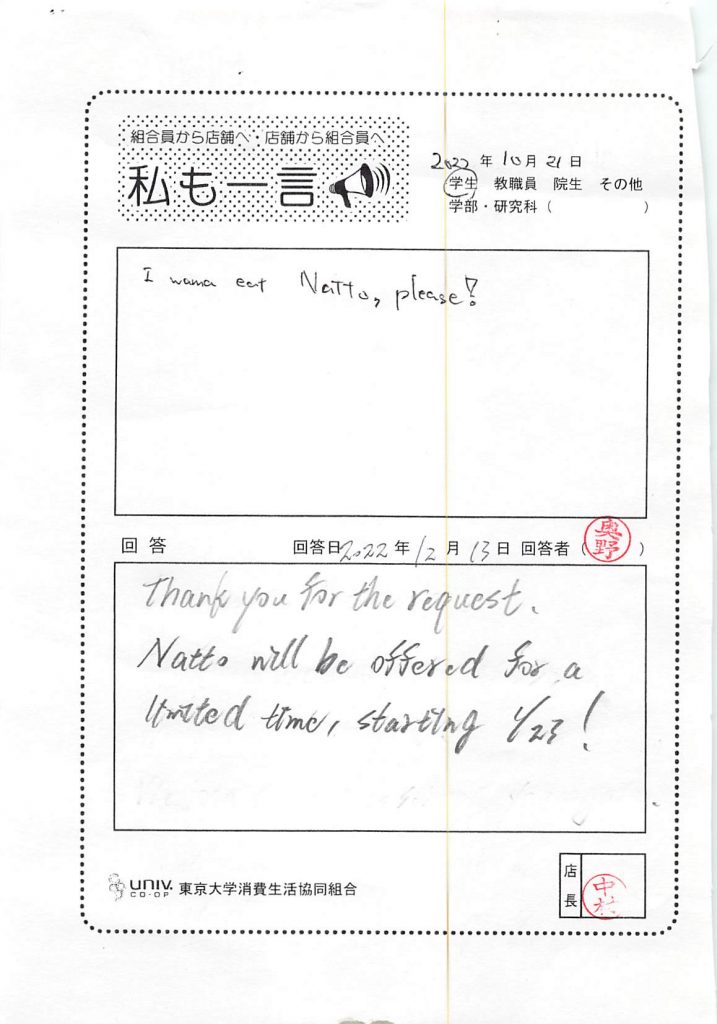 組合員から店舗へ・店舗から組合員へ
私も一言
2022年10月21日
学生 教職員 院生 その他
学部・研究科（ ）
I wanna eat Natto, please!
回答 回答日2022年12月13日 回答者（奥野）
Thank you for the request.
Natto will be offered for a
limited time, starting 1/23!
UNIV.
CO-OP
東京大学消費生活協同組合
店長
中村